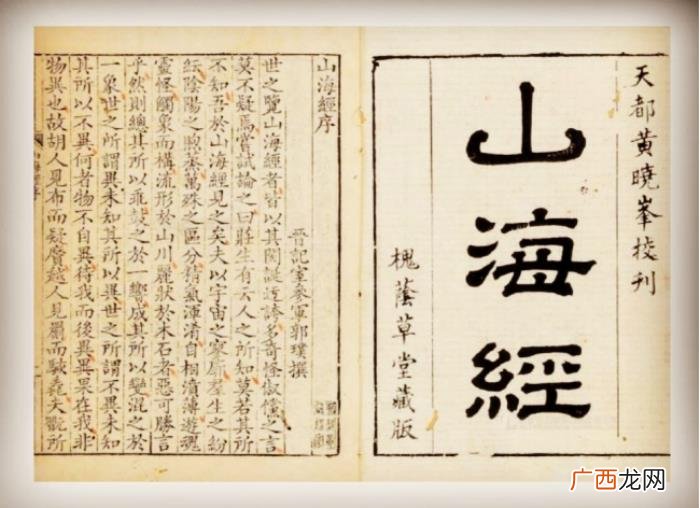 天都黃曉峯校刊
山海經
槐蔭草堂藏版
山海經序
晉記室參軍郭璞撰
世之覽山海經者皆以其閎誕迂誇多奇怪俶儻之言
莫不疑焉嘗試論之曰莊生有云人之所知莫若其所
不知吾於山海經見之矣夫以宇宙之寥廓羣生之紛
紜陰陽之煦蒸萬殊之區分精氣渾淆自相濆薄遊魂
靈怪觸象而構流形於山川麗狀於木石者惡可勝言
乎然則總其所以乖鼓之於一響成其所以變混之於
一象世之所謂異未知其所以異世之所謂不異未知
其所以不異何者物不自異待我而後異異果在我非
物異也故胡人見布而疑黂越人見罽而駭毳夫翫所
广西龙网